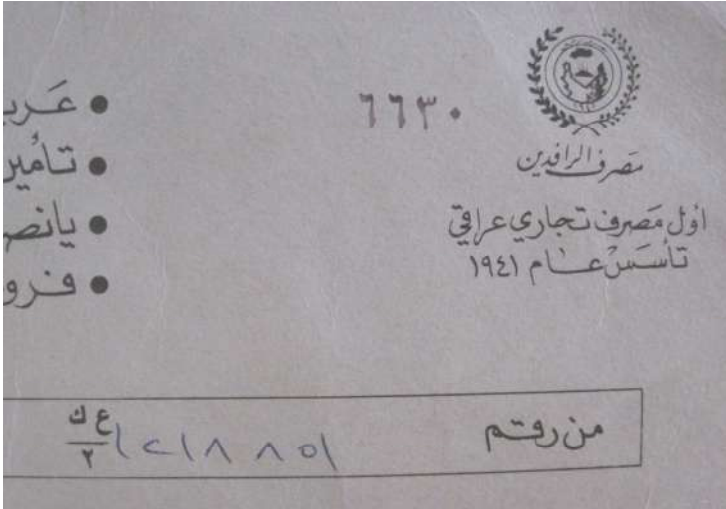 مصرف الرافدين
أول مصرف تجاري عراقي
تأسس عام ١٩٤١
٦٦٣٠
• عَربـ
• تأميـ
• يانصـ
• فرو
من رقم
ع ك
٢